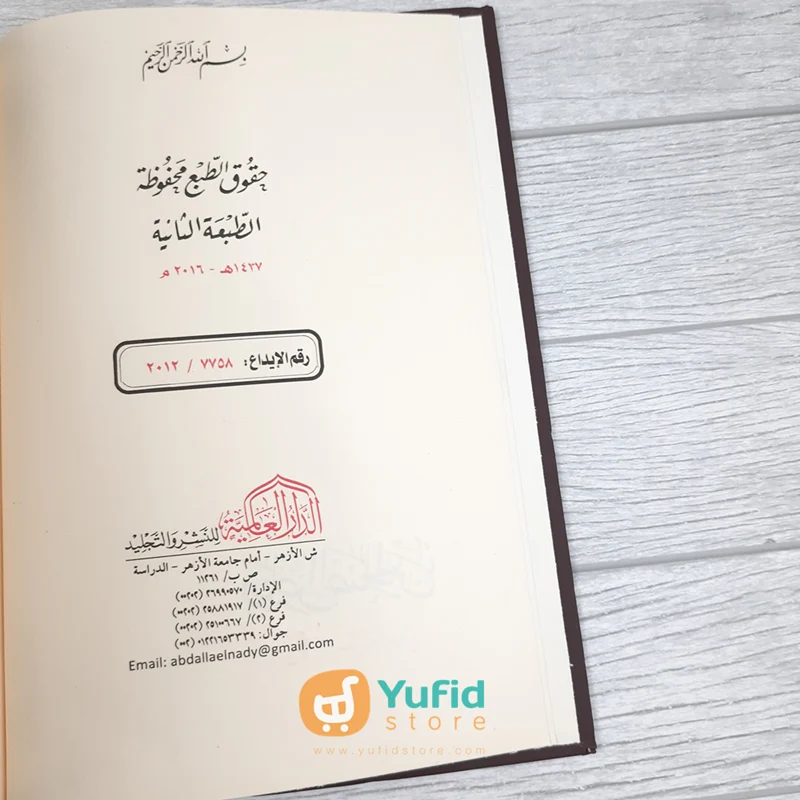 بسم الله الرحمن الرحيم
حقوق الطبع محفوظة
الطبعة الثانية
١٤٣٧هـ - ٢٠١٦ م
رقم الإيداع: ٧٧٥٨ / ٢٠١٢
الدار العالمية للنشر والتجليد
ش الأزهر - أمام جامعة الأزهر - الدراسة
ص ب/ ١١٢٦١
الإدارة/ ٢٦٩٩٠٥٧٠ (٠٠٢٠٢)
فرع (١)/ ٢٥٨٨١٩١٧ (٠٠٢٠٢)
فرع (٢)/ ٢٥١٠٠٦٦٧ (٠٠٢٠٢)
جوال: ٠١٢٢١٦٥٣٣٣٩ (٠٠٢)
Email: abdallaelnady@gmail.com
Yufid
store
www.yufidstore.com